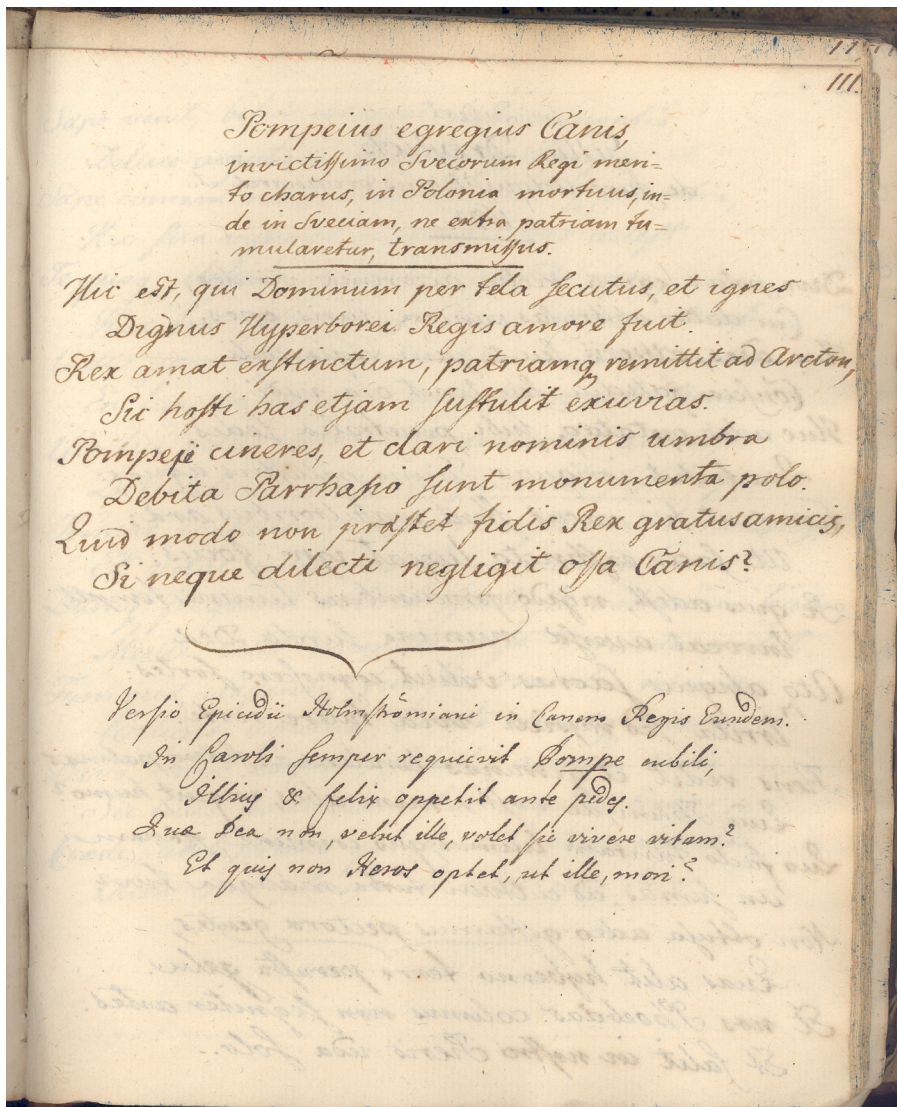 11
111.
Pompeius egregius Canis,
invictissimo Svecorum Regi meri=
to charus, in Polonia mortuus, in=
de in Sveciam, ne extra patriam tu=
mularetur, transmissus.
Hic est, qui Dominum per tela secutus, et ignes
Dignus Hyperborei Regis amore fuit.
Rex amat exstinctum, patriamq remittit ad Arcton,
Sic hosti has etjam sustulit exuvias.
Pompeji cineres, et clari nominis umbra
Debita Parrhasio sunt monumenta polo.
Quid modo non præstet fidis Rex gratus amicis,
Si neque dilecti negligit ossa Canis?
Versio Epicedii Holmströmiani in Canem Regis Eundem.
In Caroli semper requievit Pompe cubili,
Illius & felix oppetit ante pedes.
Quæ Dea non, velut ille, volet sic vivere vitam?
Et quis non Heros optet, ut ille, mori?